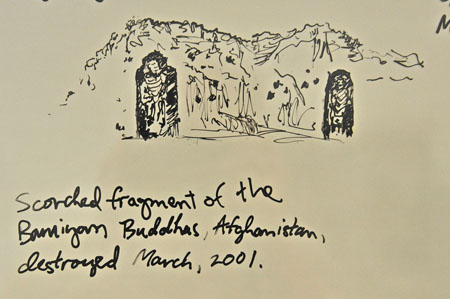 M
Scorched fragment of the
Bamiyam Buddhas, Afghanistan,
destroyed March, 2001.